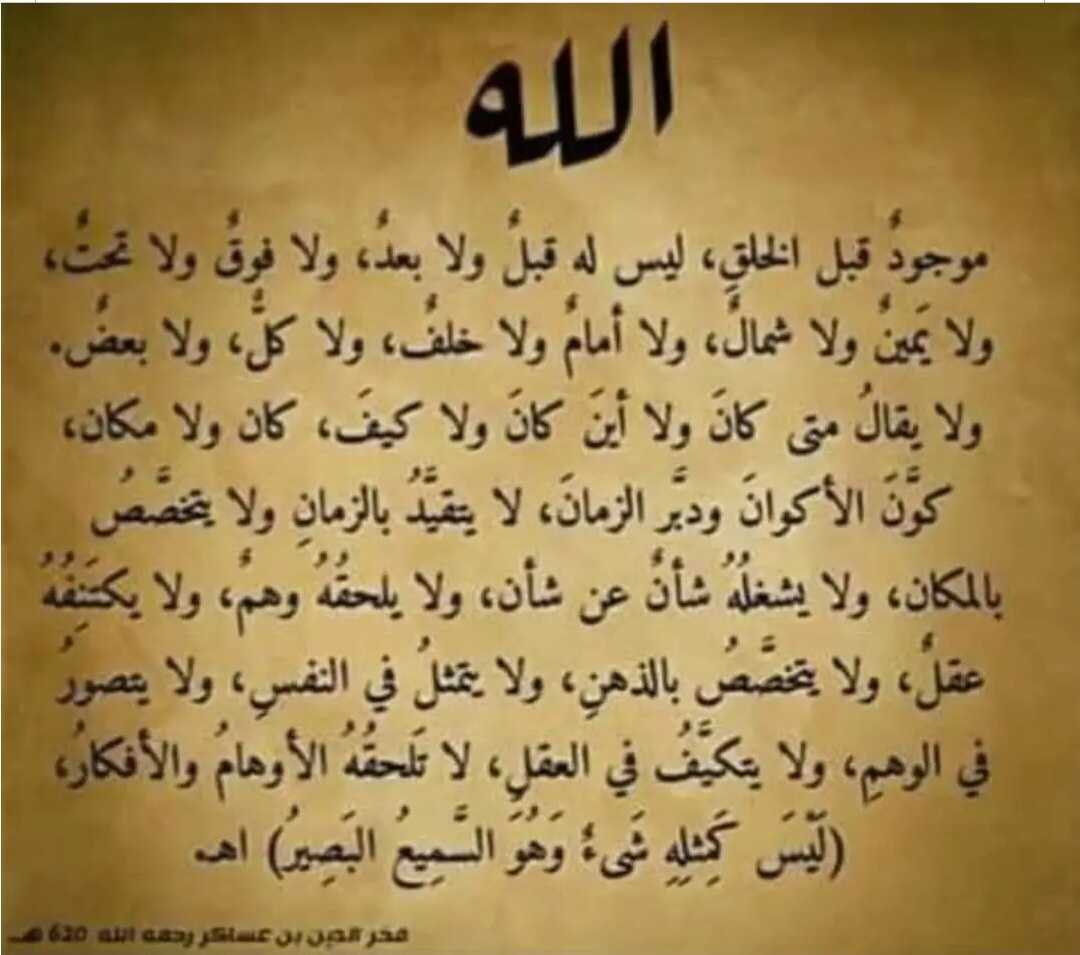 الله
موجودٌ قبل الخلقِ، ليس له قبلٌ ولا بعدٌ، ولا فوقٌ ولا تحتٌ،
ولا يَمينٌ ولا شمالٌ، ولا أمامٌ ولا خلفٌ، ولا كلٌّ، ولا بعضٌ.
ولا يقالُ متى كانَ ولا أينَ كانَ ولا كيفَ، كان ولا مكان،
كوَّنَ الأكوانَ ودبَّر الزمانَ، لا يتقيَّدُ بالزمانِ ولا يتخصَّصُ
بالمكان، ولا يشغلُهُ شأنٌ عن شأن، ولا يلحقُهُ وهمٌ، ولا يكتَنِفُهُ
عقلٌ، ولا يتخصَّصُ بالذهنِ، ولا يتمثلُ في النفسِ، ولا يتصورُ
في الوهمِ، ولا يتكيَّفُ في العقلِ، لا تَلحقُهُ الأوهامُ والأفكارُ،
(لَيْسَ كَمِثلِهِ شَىءٌ وَهُوَ السَّمِيعُ البَصِيرُ) اهـ
فخر الدين بن عساكر رحمه الله 620 هـ